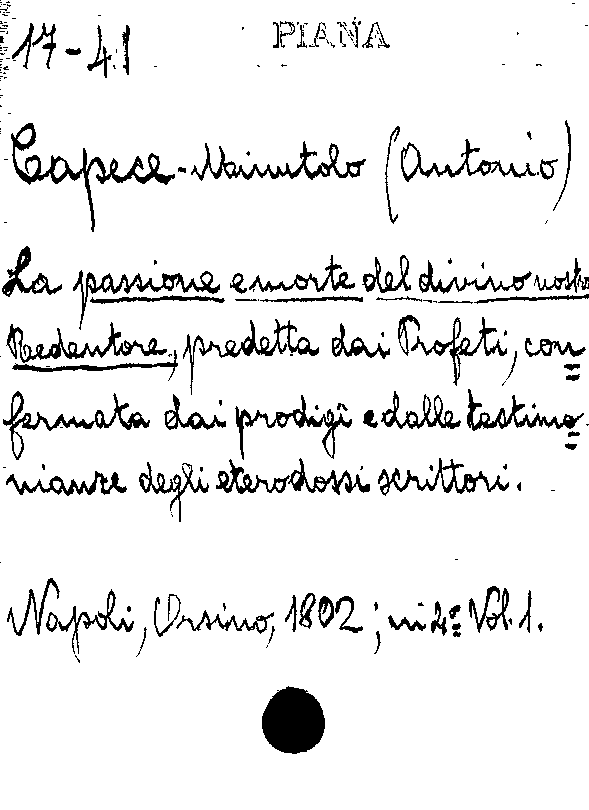 17-41 PIANA
Capece-Minutolo (Antonio)
La passione e morte del divino nostro
Redentore, predetta dai Profeti, con=
fermata dai prodigî e dalle testimo=
nianze degli eterodossi scrittori.
Napoli, Orsino, 1802; in 4º Vol. 1.